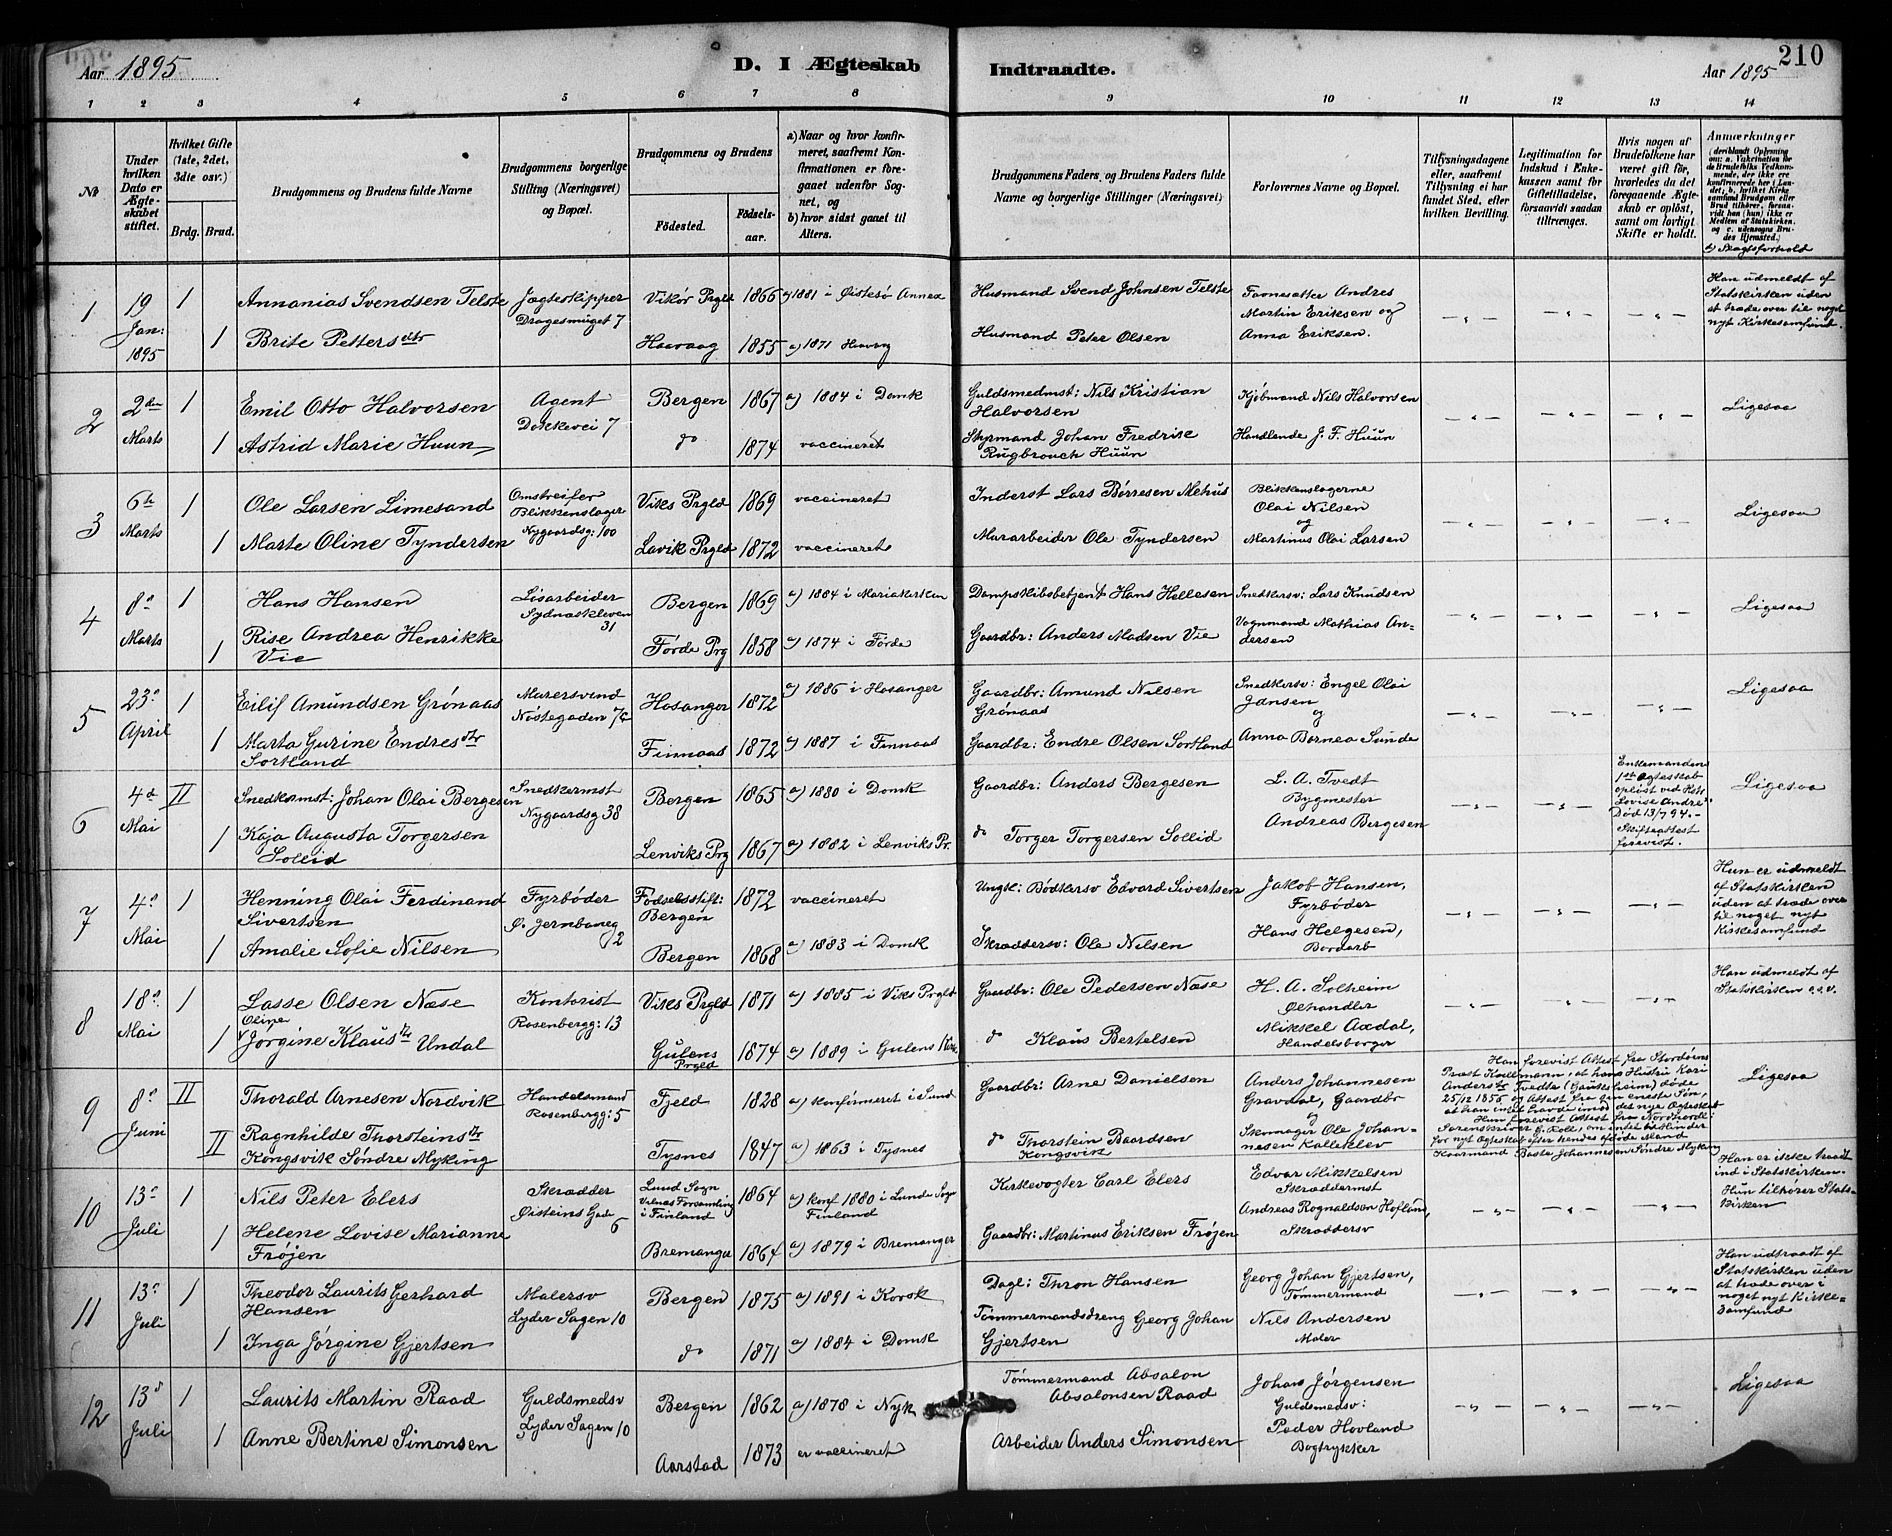 Aar 1895
D. I Ægteskab
Indtraadte.
Aar 1895
210
1
2
3
4
5
6
7
8
9
10
11
12
13
14
No
Under hvilken Dato er Ægteskabet stiftet.
Hvilket Gifte (1ste, 2det, 3die osv.)
Brdg.
Brud.
Brudgommens og Brudens fulde Navne
Brudgommens borgerlige Stilling (Næringsvei) og Bopæl.
Brudgommens og Brudens
Födested.
Födselsaar.
a) Naar og hvor konfirmeret, saafremt Konfirmationen er foregaaet udenför Sognet, og
b) hvor sidst gaaet til Alters.
Brudgommens Faders og Brudens Faders fulde Navne og borgerlige Stillinger (Næringsvei)
Forlovernes Navne og Bopæl.
Tillysningsdagene eller, saafremt Tillysning ei har fundet Sted, efter hvilken Bevilling.
Legitimation for Indskud i Enkekassen samt for Giftetilladelse, forsaavidt saadan tiltrænges.
Hvis nogen af Brudefolkene har været gift för, hvorledes da det foregaaende Ægteskab er oplöst, samt om lovligt Skifte er holdt.
Anmærkninger
1
19 Jan: 1895
1
Annanias Svendsen Telste
Jagteskipper
Dragesmuget 7
Vikør Prgld
1866
a) 1881 i Østesø Annex
Husmand Svend Johnsen Telste
Martin Eriksen og
Anna Eriksen.
Han udmeldt af
Statskirken uden
at træde over til noget
nyt Kirkesamfund.
1
Brite Pettersdtr
1855
a) 1871
Husmand Peter Olsen
2
2den Marts
1
Emil Otto Halvorsen
Agent
Dokkevei 7
Bergen
1867
a) 1884 i Domk
Guldsmedmst: Nils Kristian
Halvorsen
Kjøbmand Nils Halvorsen
Ligesaa
1
Astrid Marie Huun
do
1874
vaccineret
Styrmand Johan Fredrik
Huun
Handlende J. F. Huun
3
6te Marts
1
Ole Larsen Limesand
Omstreifer
Blikkenslager
Nygaardsg: 100
Viks Prgld
1869
vaccineret
Inderst Lars Børresen Mehus
Blikkenslagerne
Olai Nilsen
og
Martinus Olai Larsen
Ligesaa
1
Marte Oline Tyndersen
Lavik Prgld
1872
vaccineret
Murarbeider Ole Tyndersen
4
8de Marts
1
Hans Hansen
Løsarbeider
Sydneskleven
31
Bergen
1869
a) 1884 i Mariakirken
Dampskibsbetjent Hans Hellesen
Snedkersv: Lars Knudsen
Vognmand Mathias An-
dersen
Ligesaa
1
Rise Andrea Henrikke
Vie
Førde Prg
1858
a) 1874 i Førde
Gaardbr: Anders Madsen Vie
5
23de April
1
Eilif Amundsen Grønaas
Murersvend
Nøstegaden
Hosanger
1872
a) 1886 i Hosanger
Gaardbr: Amund Nilsen
Grønaas
Snedkersv: Engel Olai
Jansen
og
Ligesaa
1
Marta Gurine Endresdtr
Sortland
Finnaas
1872
a) 1887 i Finnaas
Gaardbr: Endre Olsen Sortland
6
4de Mai
II
Snedkermst: Johan Olai Bergesen
Snedkermst
Nygaardsg 38
Bergen
1865
a) 1880 i Domk
Gaardbr: Anders Bergesen
L. A. Tvedt
Bygmester
Andreas Bergesen
Enkemanden
1ste Ægteskab
opløst ved
Død 13/7 94.
Skifteattest
forevist.
Ligesaa
1
Kaja Augusta Torgersen
Sollid
Lenviks Prg
1867
a) 1882 i Lenviks Pr.
do Torger Torgersen Sollid
7
4de Mai
1
Henning Olai Ferdinand
Sivertsen
Fyrbøder
Ø. Jernbaneg
12
Fødselsstift:
Bergen
1872
vaccineret
Ungk: Bødkersv Edvard Sivertsen
Jakob Hansen,
Fyrbøder
Hans Helgesen,
Bordarb
Hun er udmeldt
af Statskirken
uden at træde over
til noget nyt
Kirkesamfund
1
Amalie Sofie Nilsen
Bergen
1868
a) 1883 i Domk
Skræddersv: Ole Nilsen
8
18de Mai
1
Lasse Olsen Næse
Kontorist
Rosenbergg: 13
Viks Prgld
1871
a) 1885 i Viks Prgld
Gaardbr: Ole Pedersen Næse
H. A. Solheim
Ølhandler
Mikkel Axdal,
Handelsborger
Han udmeldt af
Statskirken o.s.v.
1
Oline
Jørgine Klausdtr Undal
Gulens
Prgld
1874
a) 1889 i Gulens
do Klaus Bertelsen
9
8de Juni
II
Thorald Arnesen Nordvik
Handelsmand
Rosenbergg: 5
Fjeld
1828
a) konfirmeret i Sund
Gaardbr: Arne Danielsen
Anders Johannesen
Gravdal, Gaardbr
og
Skomager Ole Johan-
nesen Kalleklev
Ligesaa
II
Ragnhilde Thorsteinsdtr
Kongsvik Søndre Myking
Tysnes
1847
a) 1863 i Tysnes
do Thorstein Baardsen
Kongsvik
10
13de Juli
1
Nils Peter Elers
Skrædder
Øisteins Gade
6
Lund Sogn
i Finland
1864
a) konf 1880 i Lunde Sogn
Finland
Kirkevogter Carl Elers
Edvar Mikkelsen
Skræddermst
Skræddersv
Han er ikke traadt
ind i Statskirken.
Hun tilhører Stats-
kirken
1
Helene Lovise Marianne
Frøjen
Bremanger
1864
a) 1879 i Bremanger
Gaardbr: Martinus Eriksen Frøjen
11
13de Juli
1
Theodor Laurits Gerhard
Hansen
Malersv
Lyder Sagen 10
Bergen
1875
a) 1891 i Korsk
Dagl: Thron Hansen
Georg Johan Gjertsen,
Tømmermand
Nils Andersen
Maler
Han udtraadt af
Statskirken uden
at træde over i
noget nyt Kirke-
samfund
1
Inga Jørgine Gjertsen
do
1871
a) 1884 i Domk
Tømmermandsdreng Georg Johan
Gjertsen
12
13de Juli
1
Laurits Martin Raad
Guldsmedsv
Lyder Sagen 10
Bergen
1862
a) 1878 i Nyk
Tømmermand Absalon
Absalonsen Raad
Johan Jørgensen
Guldsmedsv:
Peder Hovland
Bogtrykker
Ligesaa
1
Anne Bertine Simonsen
Aarstad
1873
er vaccineret
Arbeider Anders Simonsen